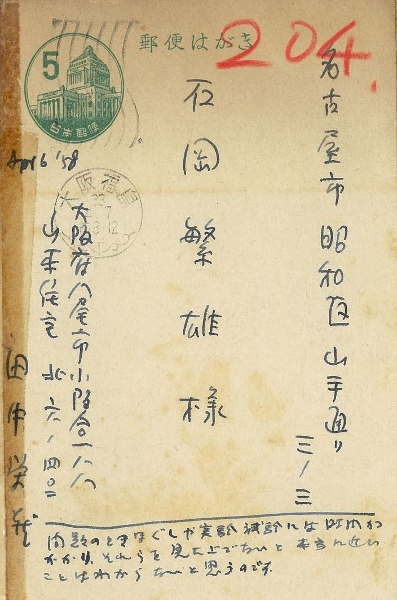 郵便はがき
204.
5
日本郵便
名古屋市昭和区山手通り
三ノ三
石岡繁雄様
Apr 6 '58
大阪福島
大阪府八尾市小阪合一八八
山本住宅 北六ノ四〇二
田中栄蔵
問題のときほぐしや実験
かかり、それらを見た上でないと 本当に近い
ことはわからないと思うのです。